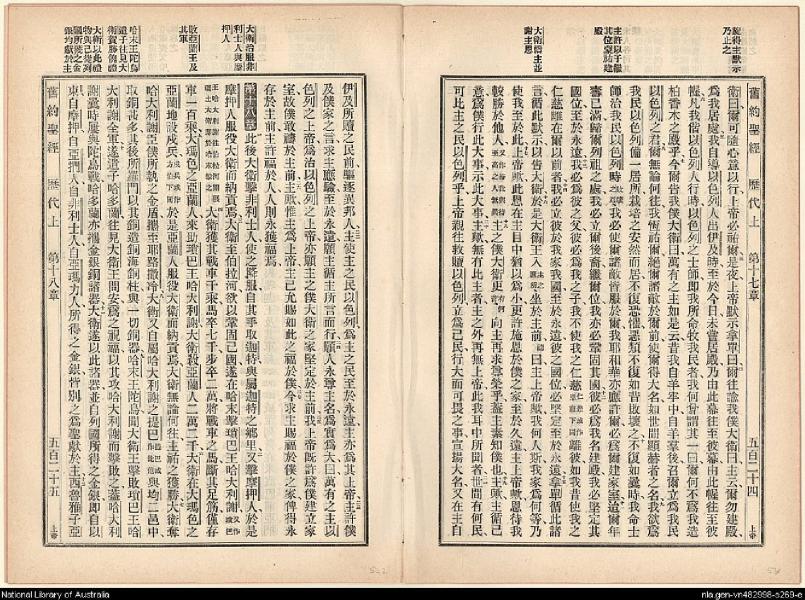 得主默示乃止之
主許以子繼其位並建殿
大衛禱主並謝主恩
舊約聖經 歷代上 第十七章 五百二十四 上帝
衛曰爾可隨心意以行上帝必祐爾是夜上帝默示拿單曰爾往諭我僕大衛曰主云爾勿建殿
爲我居處我自導以色列人出伊及時至於今日未嘗居殿乃由此幕往至彼幕由此幄往至彼
幄凡我偕以色列人行時以色列之士師卽我所命牧我民者我何嘗謂其一曰爾何不爲我造
柏香木之殿乎今爾告我僕大衛曰萬有之主如是云昔我自羊牢中自羊羣後召爾立爲我民
以色列之君爾無論何往我恆祐爾絕爾諸敵於爾前使爾得大名如世間顯赫者之名我欲爲
我民以色列備一居所栽培之安然而居不復恐懼惡類不復如昔敗壞之不復如曩時我命士
師治我民以色列時我必使爾諸敵皆服於爾我耶和華亦應許爾必爲爾建家室迨爾年
壽已滿歸爾列祖之處我必立爾後裔繼爾位我亦必鞏固其國彼必爲我名建殿我必堅定其
國位至於永遠我必爲彼之父彼必爲我之子我不使我之仁慈離彼如我昔使我之
仁慈離在爾以前者我必立彼於我家我國至於永遠彼之國位必堅定至於永遠拿單循此諸
言循此默示以告大衛於是大衛王入坐於主前曰主上帝歟我何人斯我家爲何等乃
使我至於此上帝歟此恩在主目中猶以爲小更許施恩於僕之家至於久遠主上帝歟恩待我
較勝於他人主之僕大衛更有何向主再求尊榮乎蓋主素知僕也主歟主循己
意爲僕行此大事示以此大事主歟無有比主者主之外再無上帝此我耳中所聞者世間有何民
可比主之民以色列乎上帝親往救贖以色列立爲己民行大而可畏之事宣揚大名又在主自
大衛治服非利士人與摩押人
敗亞蘭王及其軍
哈末王陀烏遣子往見大衛賀勝饋禮
大衛以此禮物與己從列國所獲之金銀均獻於主
伊及所贖之民前驅逐異邦人主使主之民以色列爲主之民至於永遠主亦爲其上帝主許僕
及僕家之言求主應驗至於永遠願主循所言而行願人永尊主名爲實爲大曰萬有之主以
色列之上帝爲治以色列之上帝亦願主之僕大衛之家堅定於主前我上帝旣許爲僕建立家
室故僕敢禱於主前主歟惟主爲上帝主已允賜如此之福於僕今求主賜福於僕之家俾得永
存於主前主許福於人人則永獲福焉
第十八章 此後大衛擊非利士人使之降服自其手取迦特與屬迦特之鄉里又擊摩押人於是
摩押人服役大衛而納貢焉大衛至伯拉河欲以鞏固己國遂在哈末擊瑣巴王哈大利謝
大衛獲其戰車千乘馬卒七千步卒二萬將戰車之馬斷其足筋僅存
車一百乘大瑪色之亞蘭人來助瑣巴王哈大利謝大衛殺亞蘭人二萬二千大衛在大瑪色之
亞蘭地設戍兵於是亞蘭人服役大衛而納貢焉大衛無論何往主前之獲勝大衛奪
哈大利謝臣僕所執之金盾攜至耶路撒冷大衛又自屬哈大利謝之提巴與均二邑中
取銅甚多其後所羅門以其銅造銅海銅柱與一切銅器哈末王陀烏聞大衛王擊敗瑣巴王哈
大利謝全軍遂遣子哈多蘭往見大衛王問安爲之祝福以其攻哈大利謝而擊敗之蓋哈大利
謝曩時屢與陀烏戰哈多蘭亦攜金銀銅諸器大衛遂以此諸器並自列國所得之金銀卽自以
東自摩押自亞捫人自非利士人自亞瑪力人所得之金銀皆別之爲聖獻於主西魯雅子亞
舊約聖經 歷代上 第十八章 五百二十五 上帝
National Library of Australia
nla.gen-vn482998-s269-e